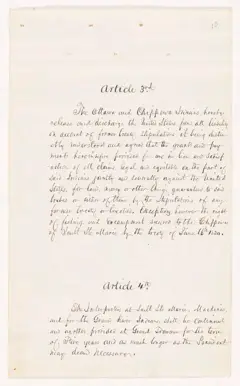 Article 3rd
The Ottawa and Chippewa Indians hereby
release and discharge the United States from all liability
on account of former treaty stipulations it being distinc-
tly understood and agreed that the grants and pay-
ments hereinbefore provided for are in lieu and satisf-
action of all claims legal and equitable on the part of
said Indians jointly and severally against the United
States for land, money or other thing guaranteed to said
tribes or either of them by the stipulations of any
former treaty or treaties. Excepting however the right
of fishing and encampment secured to the Chippewas
of Sault Ste Marie by the treaty of June 16th 1820.
Article 4th
The Interpreters at Sault Ste Marie, Mackinac,
and for the Grand River Indians shall be continued
and another provided at Grand Traverse for the term
of Five years and as much longer as the President
may deem necessary.